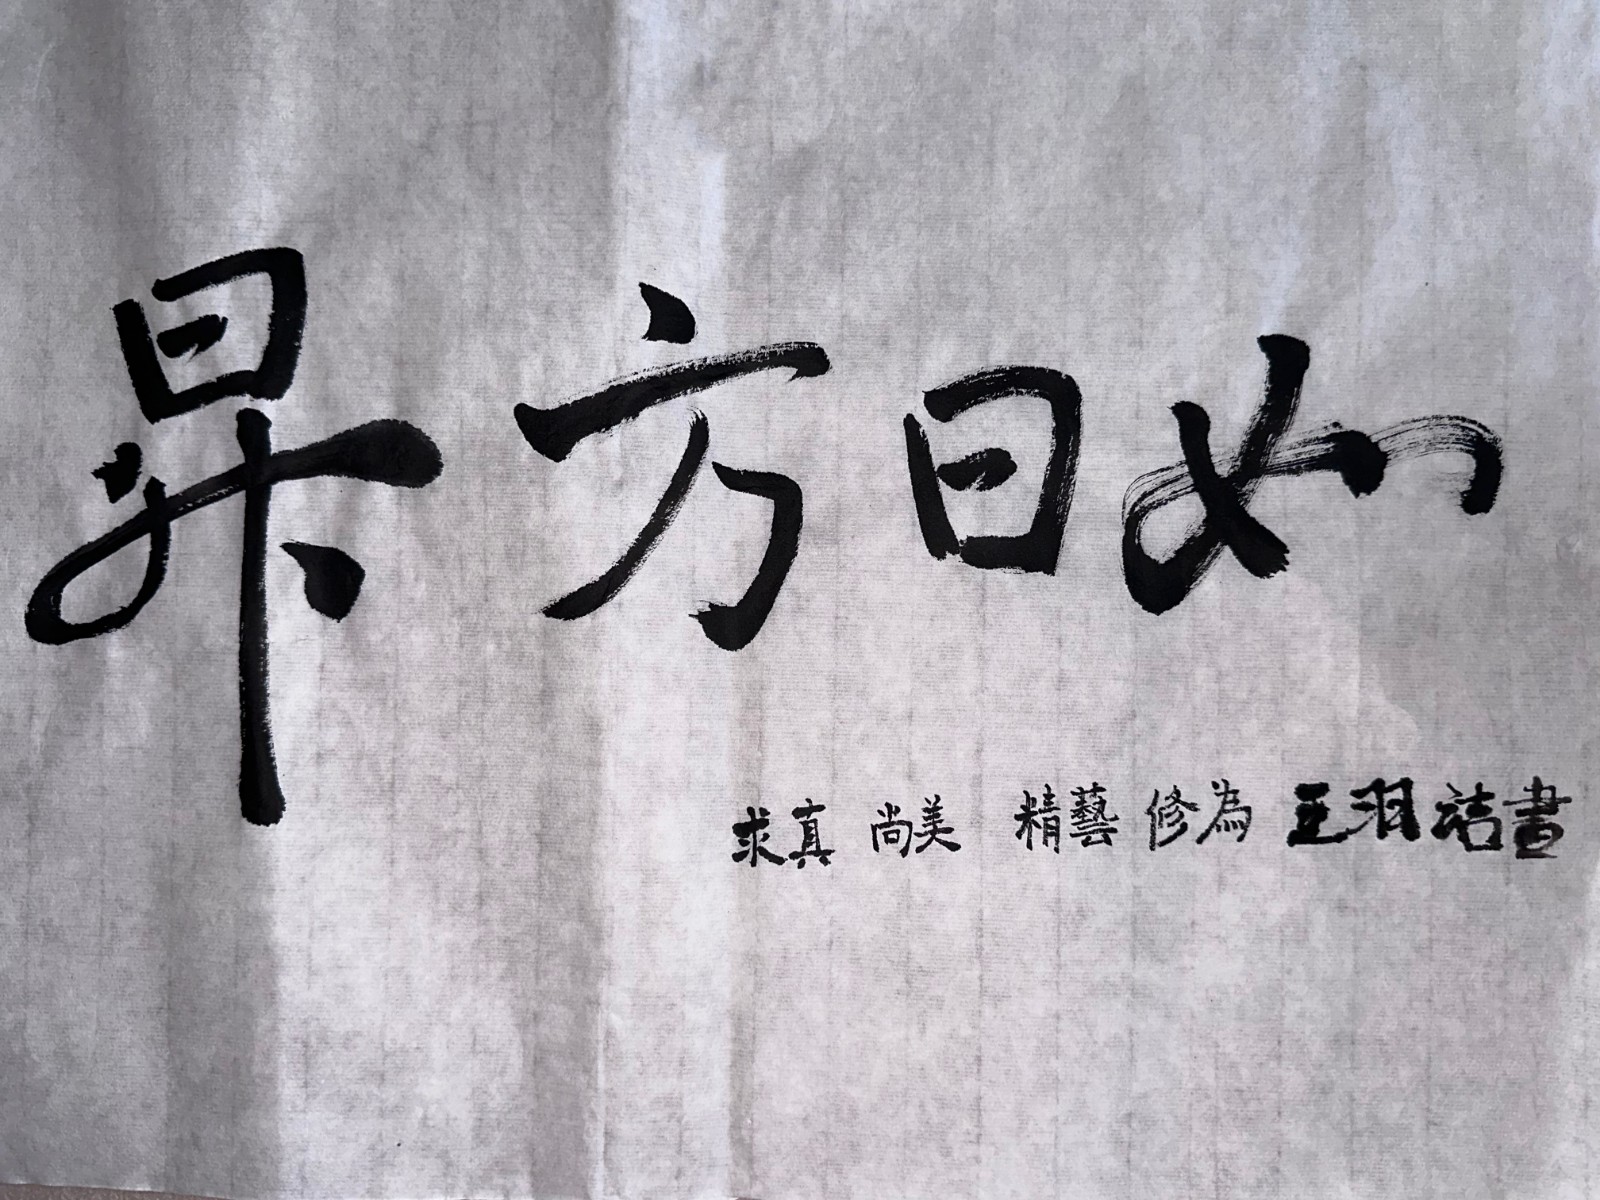 如日方昇
求真 尚美 精藝 修為 王羽詰書